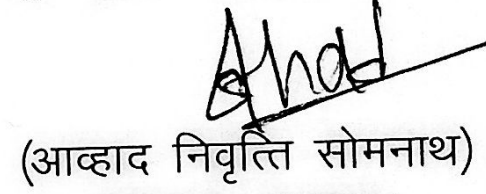 Ahad
(आव्हाद निवृत्ति सोमनाथ)